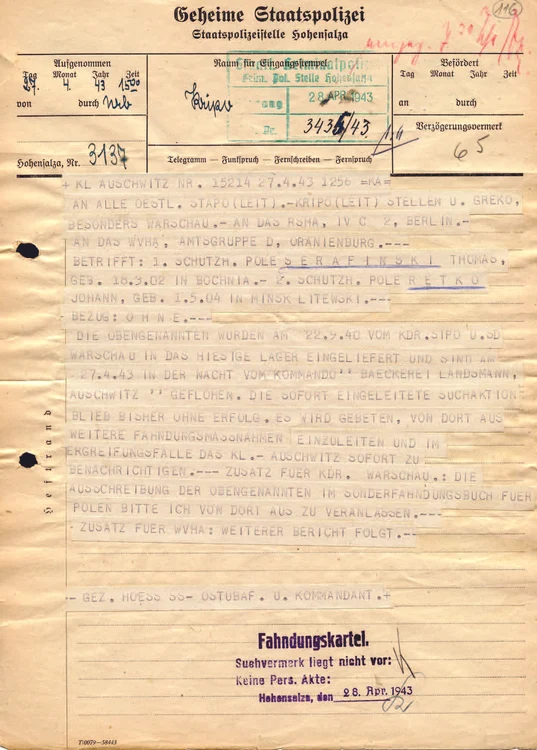 116
Geheime Staatspolizei
Staatspolizeistelle Hohensalza
Aufgenommen
Tag Monat Jahr Zeit
27. 4. 43 1500
von durch
Raum für Eingangsstempel
Kripo
Kriminalpoli
Krim. Pol. Stelle Hohensalza
28. APR. 1943
Nr. 343 /43
Befördert
Tag Monat Jahr Zeit
an durch
Verzögerungsvermerk
65
Hohensalza, Nr. 3137
Telegramm – Funkspruch – Fernschreiben – Fernspruch
+ KL AUSCHWITZ NR. 15214 27.4.43 1256 =KA=
AN ALLE OESTL. STAPO(LEIT).-KRIPO(LEIT) STELLEN U. GREKO,
BESONDERS WARSCHAU.- AN DAS RSHA, IV C 2, BERLIN.-
AN DAS WVHA, AMTSGRUPPE D, ORANIENBURG.---
BETRIFFT: 1. SCHUTZH. POLE S E R A F I N S K I THOMAS,
GEB. 18.9.02 IN BOCHNIA.- 2. SCHUTZH. POLE R E T K O
JOHANN, GEB. 1.5.04 IN MINSK LITEWSKI.---
BEZUG: O H N E.---
DIE OBENGENANNTEN WURDEN AM 22.9.40 VOM KDR. SIPO U. SD
WARSCHAU IN DAS HIESIGE LAGER EINGELIEFERT UND SIND AM
-27.4.43 IN DER NACHT VOM KOMMANDO '' BAECKEREI LANDSMANN,
AUSCHWITZ '' GEFLOHEN. DIE SOFORT EINGELEITETE SUCHAKTION
BLIEB BISHER OHNE ERFOLG. ES WIRD GEBETEN, VON DORT AUS
WEITERE FAHNDUNGSMASSNAHMEN EINZULEITEN UND IM
ERGREIFUNGSFALLE DAS KL.- AUSCHWITZ SOFORT ZU
BENACHRICHTIGEN.--- ZUSATZ FUER KDR. WARSCHAU.: DIE
AUSSCHREIBUNG DER OBENGENANNTEN IM SONDERFAHNDUNGSBUCH FUER
POLEN BITTE ICH VON DORT AUS ZU VERANLASSEN.---
- ZUSATZ FUER WVHA: WEITERER BERICHT FOLGT.---
- GEZ. HOESS SS- OSTUBAF. U. KOMMANDANT.+
Heftrand
Fahndungskartei.
Suchvermerk liegt nicht vor:
Keine Pers. Akte:
Hohensalza, den 28. Apr. 1943
T/0079—38443